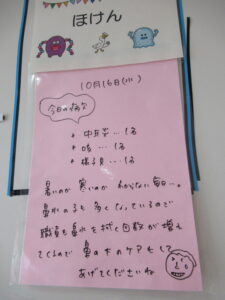 ほけん
10月16日(水)
今日の病欠
中耳炎…1名
咳…1名
様子見…1名
暑いのか 寒いのか わからない毎日…。
鼻水の子も 多くなっているので
職員も鼻水を拭く回数が増え
てくるので 鼻の下のケアもして
あげてくださいね